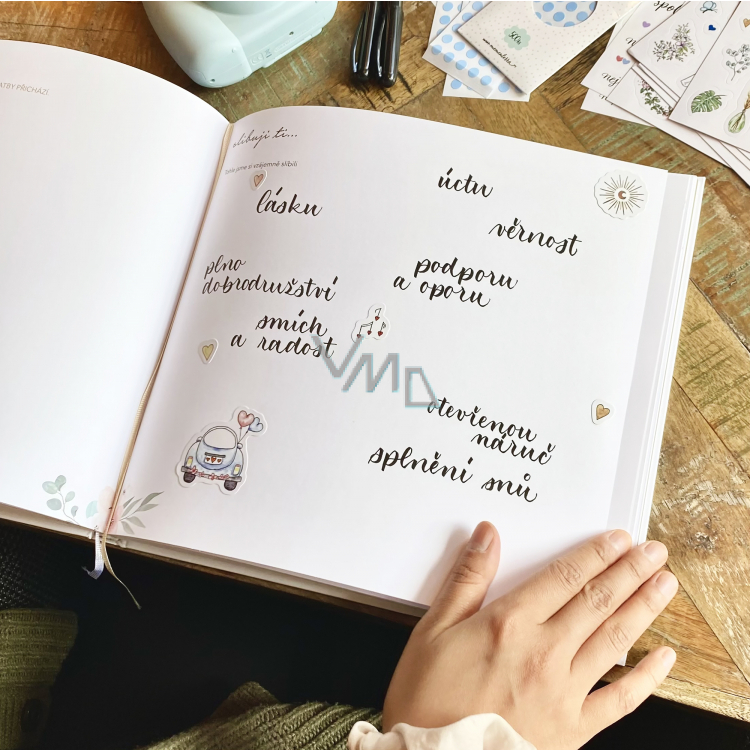 slibuji ti...
Toto jsme si vzájemně slíbili
lásku
úctu
věrnost
plno
dobrodružství
podporu
a oporu
smích
a radost
VMD
otevřenou
náruč
splnění snů